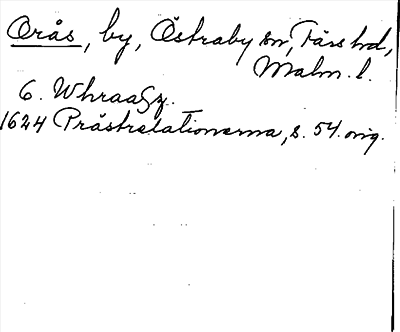 Orås, by, Östraby sn, Färs hd,
Malm. l.
6. Whraaſz.
1624 Prästrelationerna, s. 54. orig.